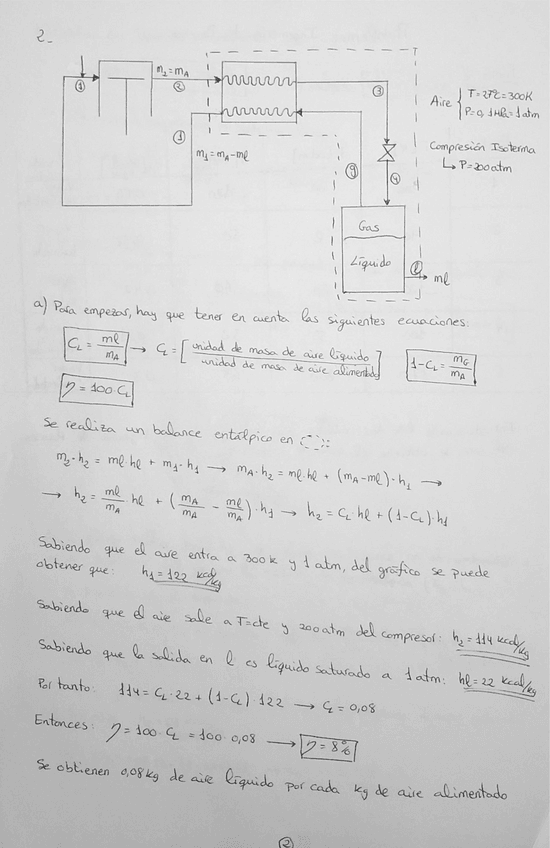 2-
①
m₂ = mA
②
③
Aire { T = 27ºC = 300K
P = 0,1 MPa = 1 atm
①
m₁ = mA - ml
⑨
④
Compresión Isoterma
↳ P = 200 atm
Gas
Líquido
ⓛ
ml
a) Para empezar, hay que tener en cuenta las siguientes ecuaciones:
CL = ml/mA → CL = [unidad de masa de aire líquido / unidad de masa de aire alimentado]
1-CL = mG/mA
η = 100·CL
Se realiza un balance entálpico en
m₂·h₂ = ml·hl + m₁·h₁ → mA·h₂ = ml·hl + (mA - ml)·h₁ →
→ h₂ = ml/mA·hl + (mA/mA - ml/mA)·h₁ → h₂ = CL·hl + (1-CL)·h₁
Sabiendo que el aire entra a 300K y 1 atm, del gráfico se puede
obtener que: h₁ = 122 kcal/kg
Sabiendo que el aire sale a T=cte y 200 atm del compresor: h₂ = 114 kcal/kg
Sabiendo que la salida en l es líquido saturado a 1 atm: hl = 22 kcal/kg
Por tanto: 114 = CL·22 + (1-CL)·122 → CL = 0,08
Entonces: η = 100·CL = 100·0,08 → η = 8%
Se obtienen 0,08 kg de aire líquido por cada kg de aire alimentado
②